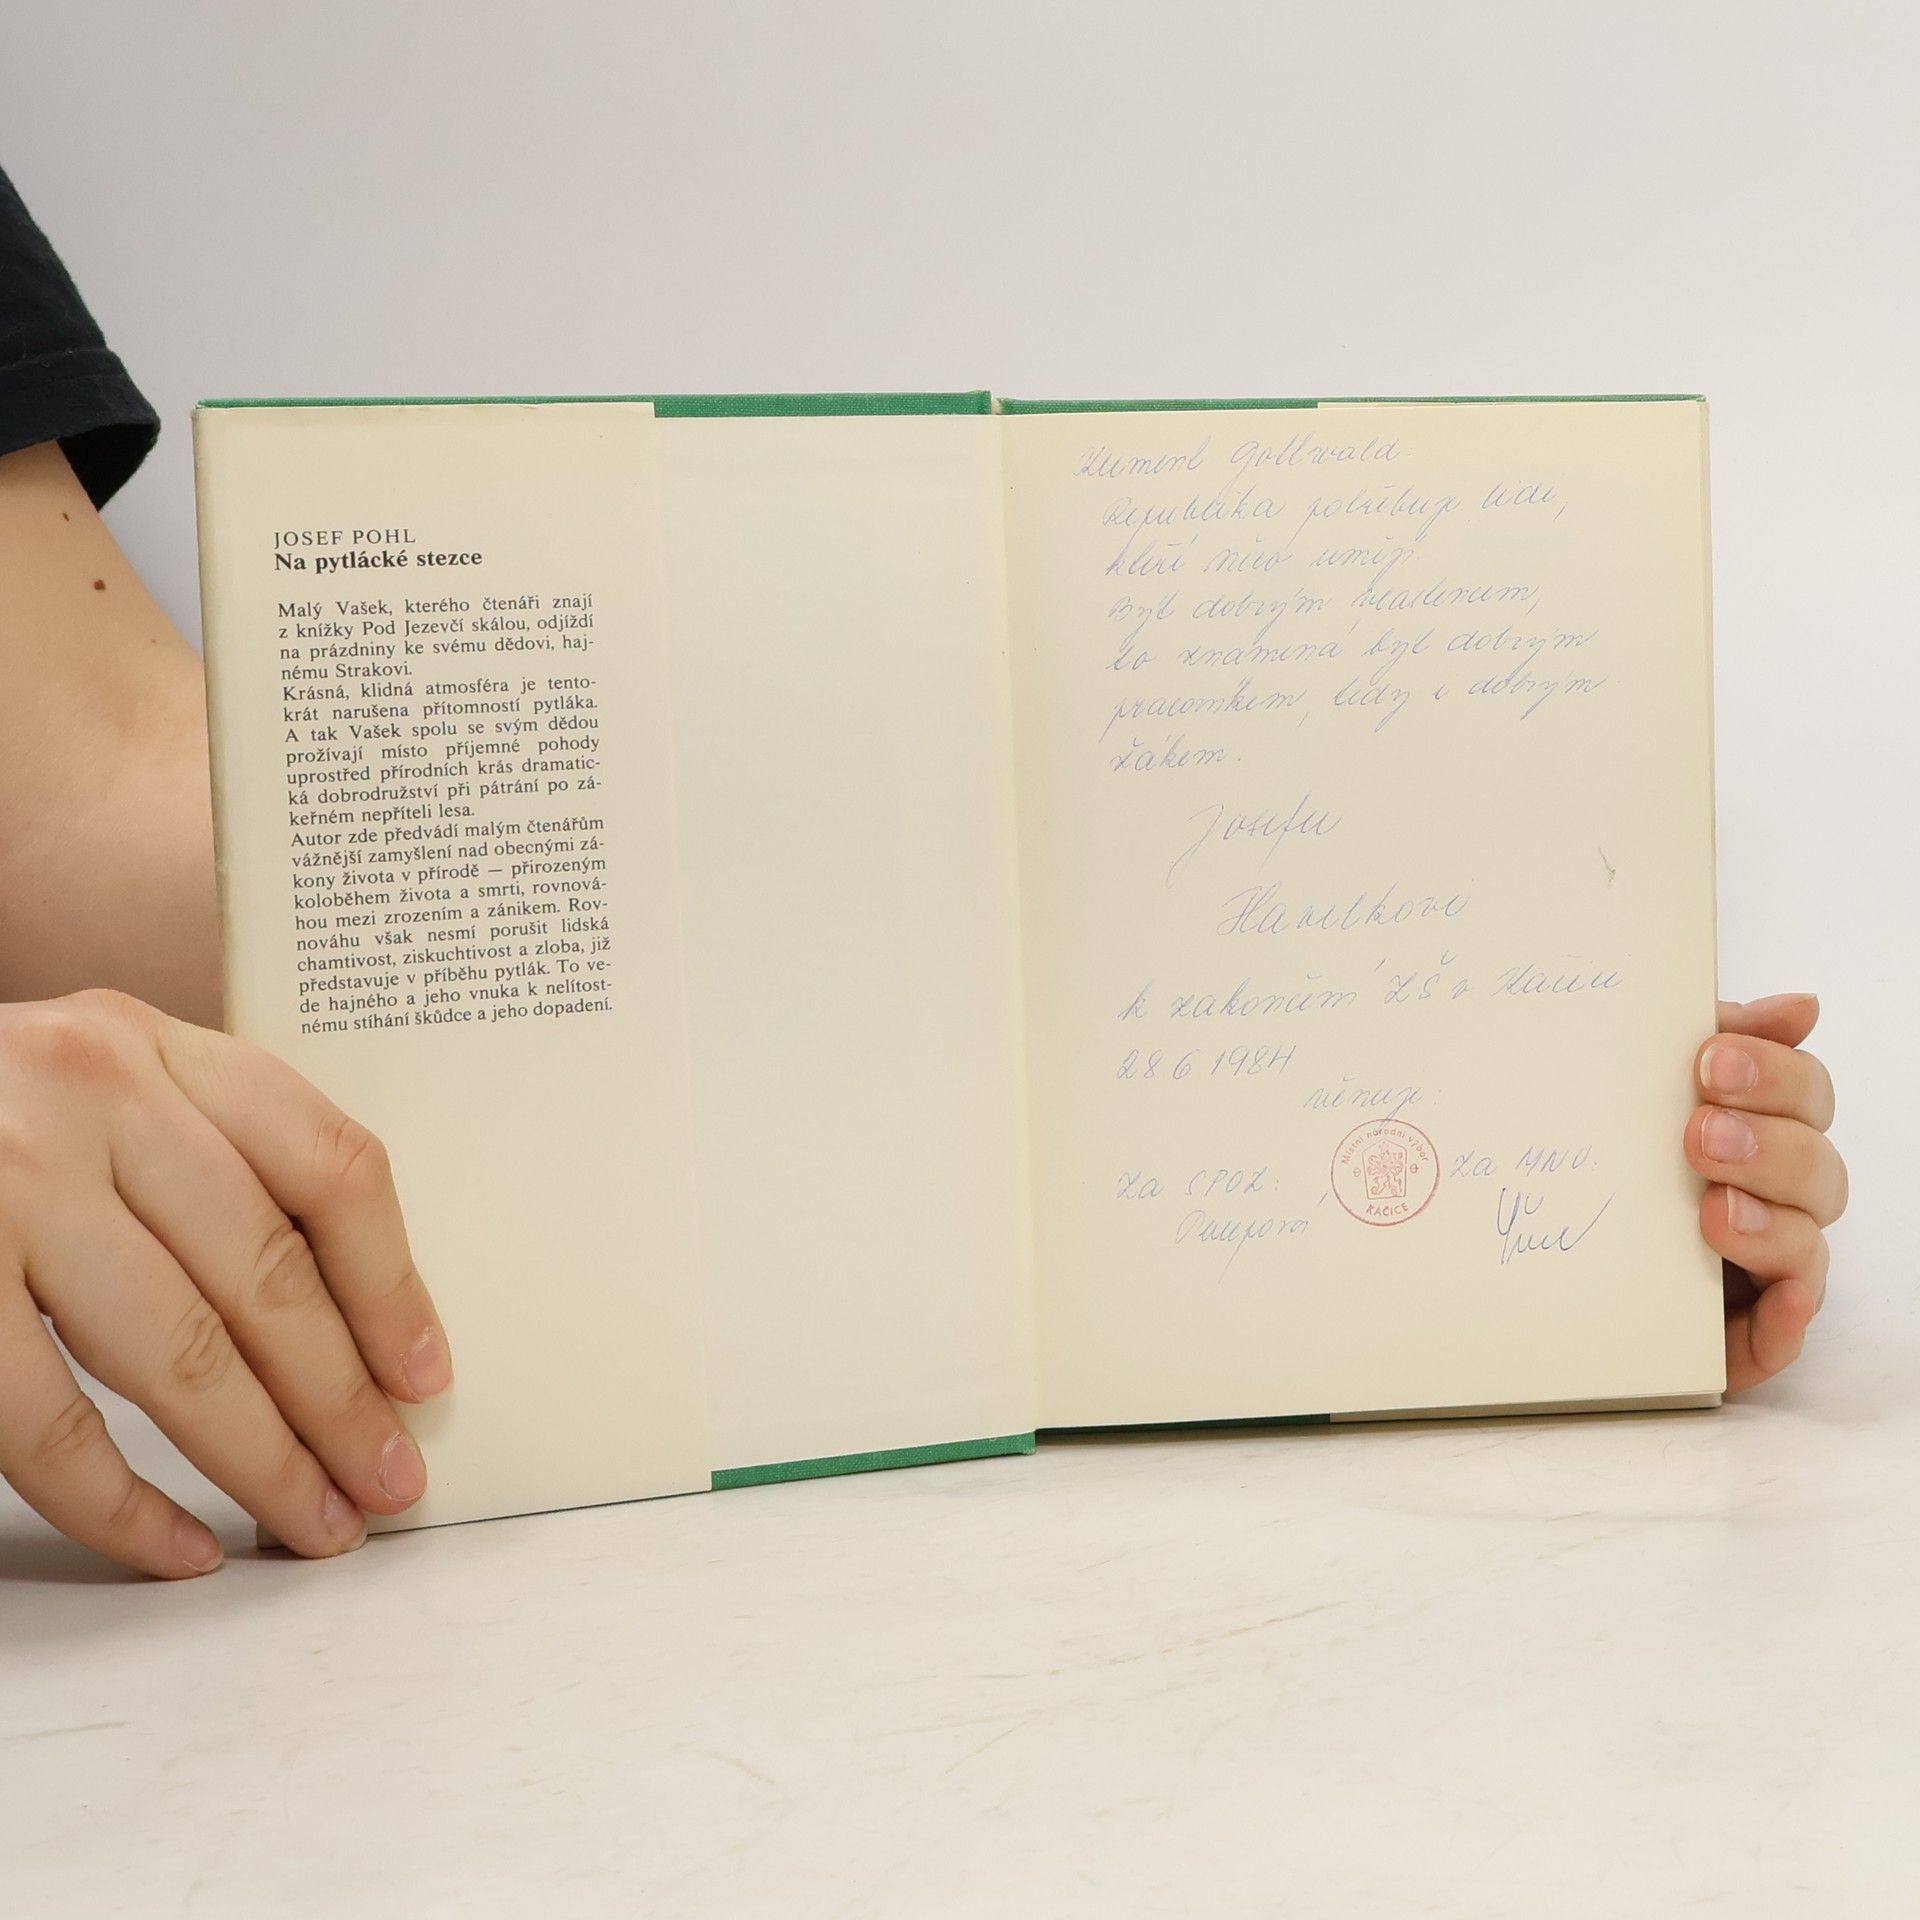 JOSEF POHL
Na pytlácké stezce
Malý Vašek, kterého čtenáři znají
z knížky Pod Jezevčí skálou, odjíždí
na prázdniny ke svému dědovi, haj-
nému Strakovi.
Krásná, klidná atmosféra je tento-
krát narušena přítomností pytláka.
A tak Vašek spolu se svým dědou
prožívají místo příjemné pohody
uprostřed přírodních krás dramatic-
ká dobrodružství při pátrání po zá-
keřném nepříteli lesa.
Autor zde předvádí malým čtenářům
vážnější zamyšlení nad obecnými zá-
kony života v přírodě — přirozeným
koloběhem života a smrti, rovnová-
hou mezi zrozením a zánikem. Rov-
nováhu však nesmí porušit lidská
chamtivost, ziskuchtivost a zloba, již
představuje v příběhu pytlák. To ve-
de hajného a jeho vnuka k nelítost-
nému stíhání škůdce a jeho dopadení.
Klement Gottwald:
Republika potřebuje lidi,
kteří něco umějí.
Být dobrým vlastencem,
to znamená být dobrým
pracovníkem, tedy i dobrým
žákem.
Josefu
Havelkovi
k zakončení ZŠ v Kačici
28 6 1984
věnuje:
Místní národní výbor
KAČICE
Za SPOZ:
Za MNV: